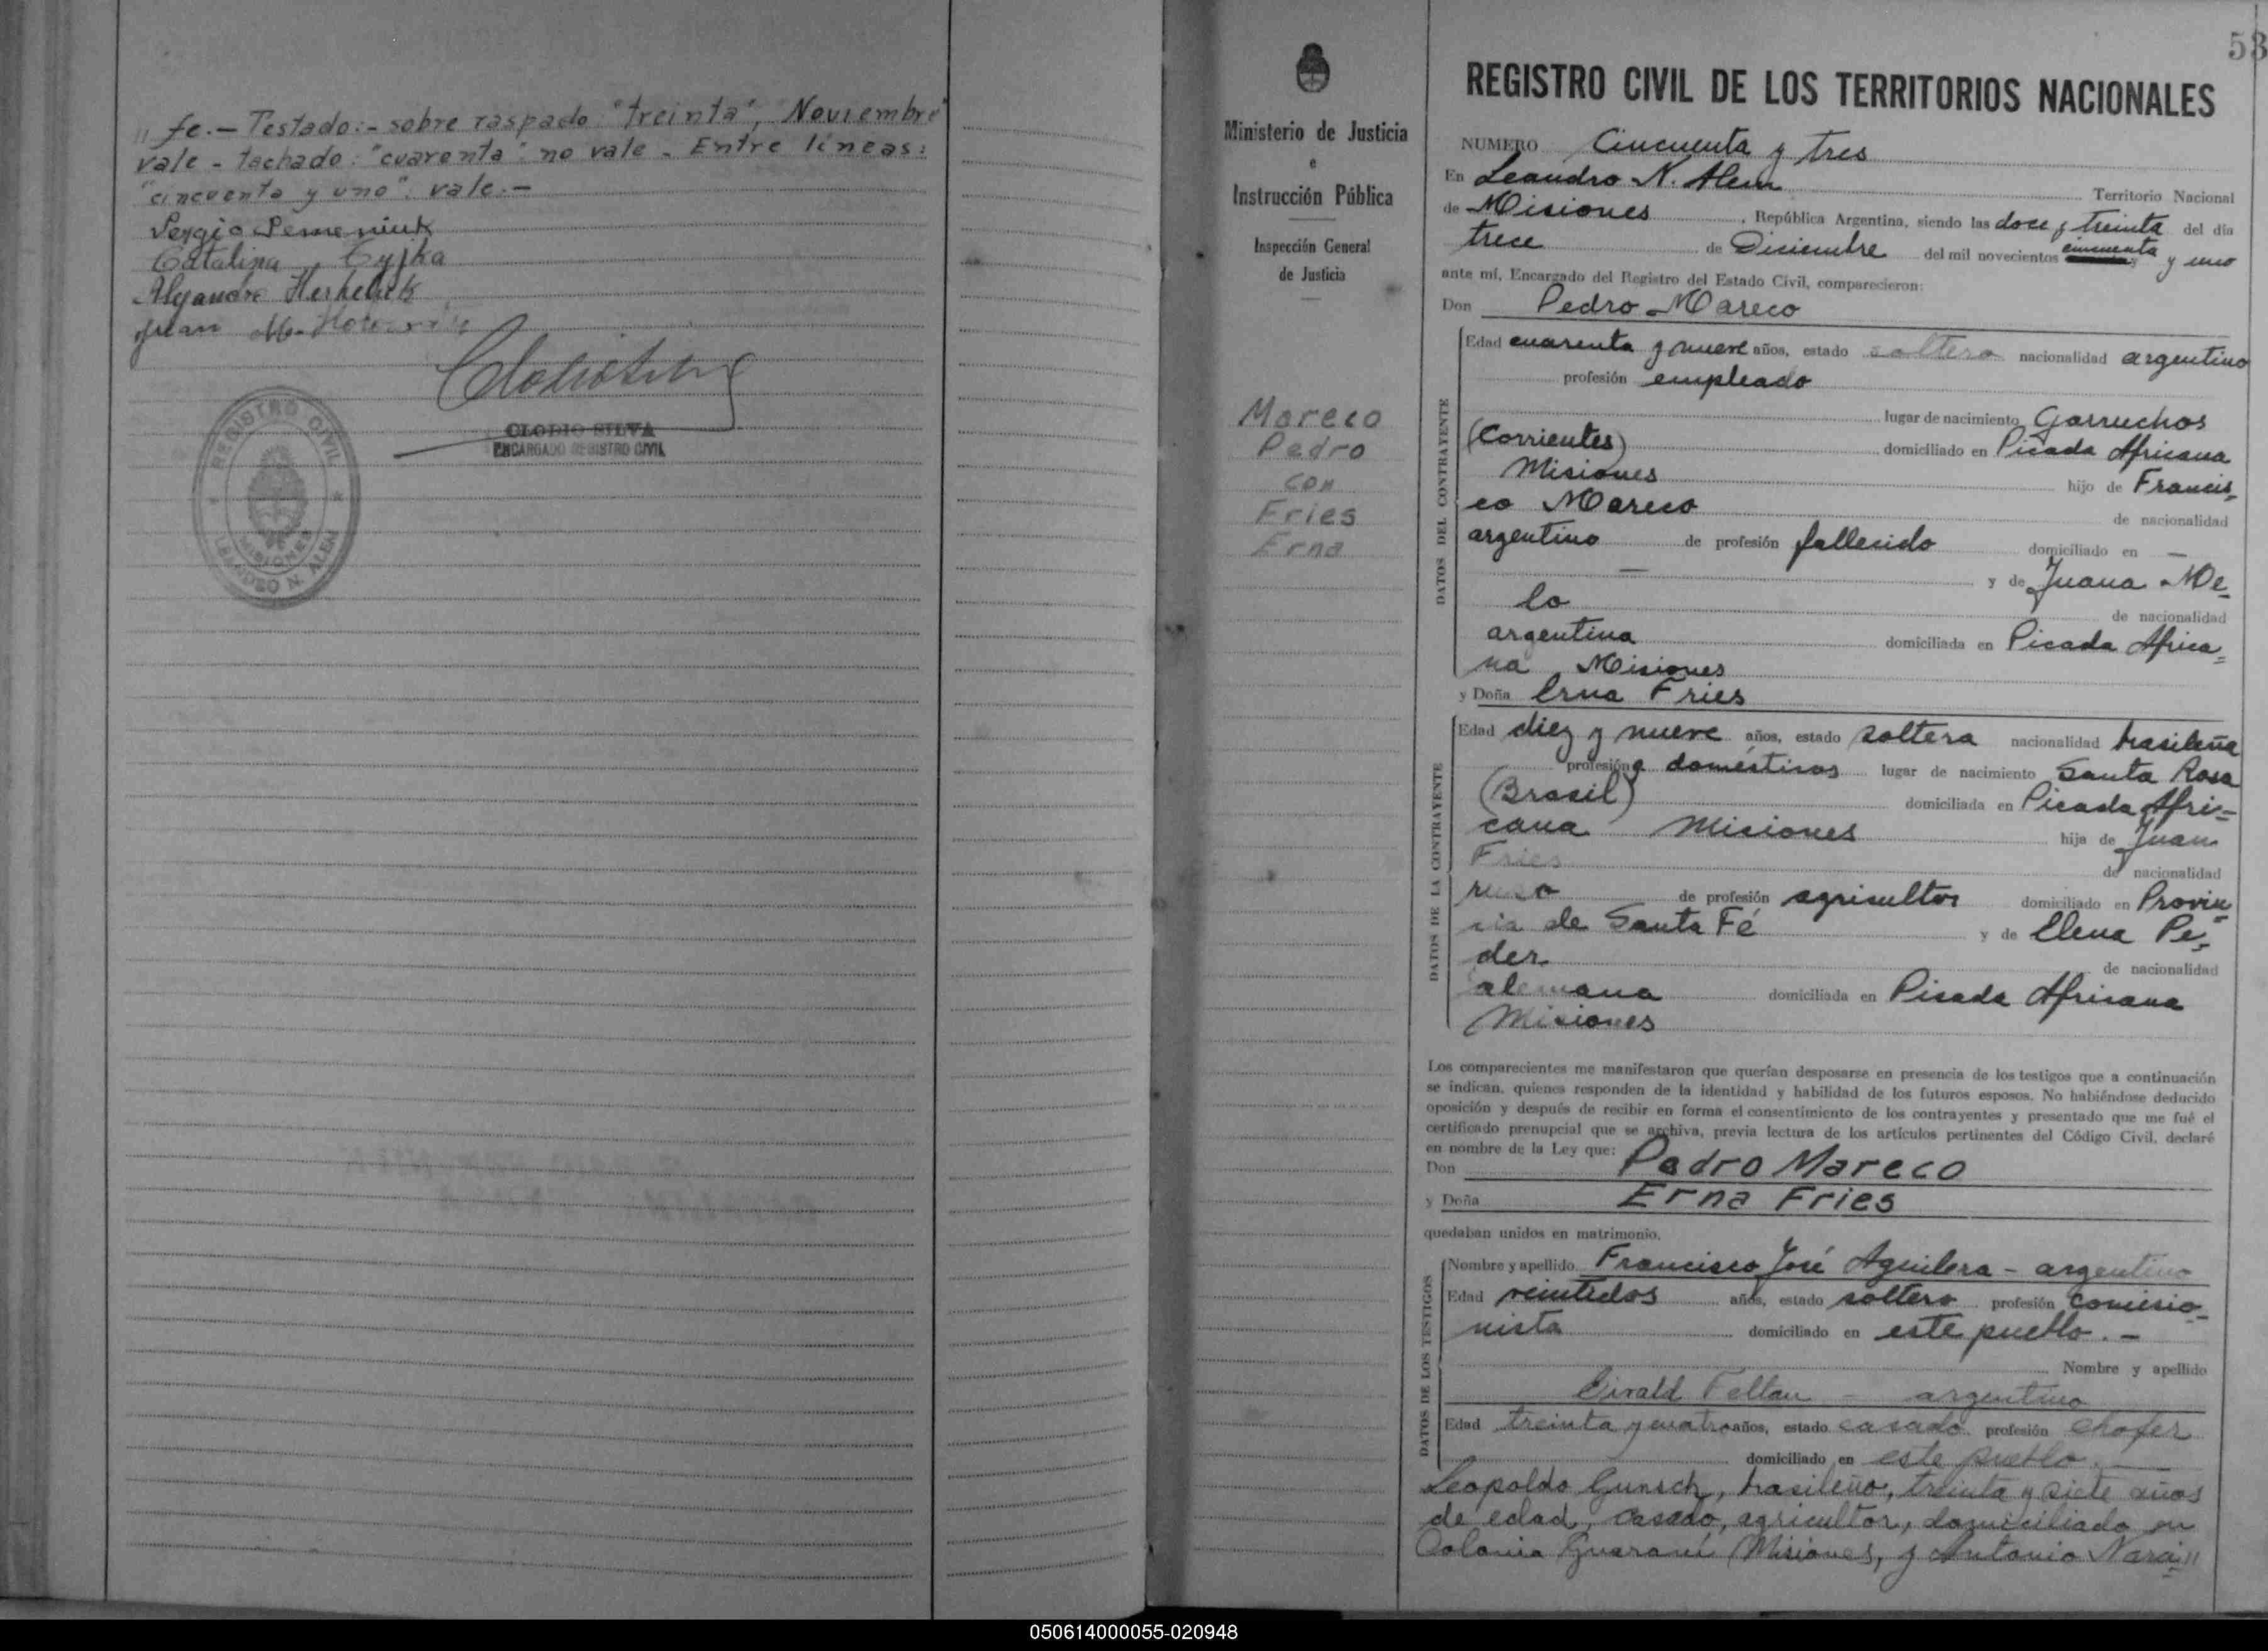 // fe.- Testado:- sobre raspado "treinta", Noviembre"
vale - tachado: "cuarenta" no vale - Entre líneas:
"cincuenta y uno": vale.-
Sergio
Catalina Cyjka
Alejandro
Juan M.
CLODIO SILVA
ENCARGADO REGISTRO CIVIL
REGISTRO CIVIL
MISIONES
LEANDRO N. ALEM
53
Ministerio de Justicia
e
Instrucción Pública
Inspección General
de Justicia
Mareco
Pedro
con
Fries
Erna
REGISTRO CIVIL DE LOS TERRITORIOS NACIONALES
NUMERO Cincuenta y tres
En Leandro N. Alem Territorio Nacional
de Misiones, República Argentina, siendo las doce y treinta del día
trece de Diciembre del mil novecientos cincuenta y uno
ante mí, Encargado del Registro del Estado Civil, comparecieron:
Don Pedro Mareco
DATOS DEL CONTRAYENTE
Edad cuarenta y nueve años, estado soltero nacionalidad argentino
profesión empleado
lugar de nacimiento Garruchos
(Corrientes) domiciliado en Picada Africana
Misiones hijo de Francis-
co Mareco de nacionalidad
argentino de profesión fallecido domiciliado en —
— y de Juana Me-
lo de nacionalidad
argentina domiciliada en Picada Africa=
na Misiones
y Doña Erna Fries
DATOS DE LA CONTRAYENTE
Edad diez y nueve años, estado soltera nacionalidad brasileña
profesión q. domésticos lugar de nacimiento Santa Rosa
(Brasil) domiciliada en Picada Afri=
cana Misiones hija de Juan
Fries de nacionalidad
ruso de profesión agricultor domiciliado en Provin=
cia de Santa Fé y de Elena Pe=
der de nacionalidad
alemana domiciliada en Picada Africana
Misiones
Los comparecientes me manifestaron que querían desposarse en presencia de los testigos que a continuación
se indican, quienes responden de la identidad y habilidad de los futuros esposos. No habiéndose deducido
oposición y después de recibir en forma el consentimiento de los contrayentes y presentado que me fué el
certificado prenupcial que se archiva, previa lectura de los artículos pertinentes del Código Civil, declaré
en nombre de la Ley que:
Don Pedro Mareco
y Doña Erna Fries
quedaban unidos en matrimonio.
DATOS DE LOS TESTIGOS
Nombre y apellido Francisco José Aguilera - argentino
Edad veintidos años, estado soltero profesión comisio-
nista domiciliado en este pueblo.-
Nombre y apellido
Feltan - argentino
Edad treinta y cuatro años, estado casado profesión chofer
domiciliado en este pueblo.
Leopoldo Gunsch, brasileño, treinta y siete años
de edad, casado, agricultor, domiciliado en
Colonia Guaraní Misiones, y Antonio Nara=//
050614000055-020948